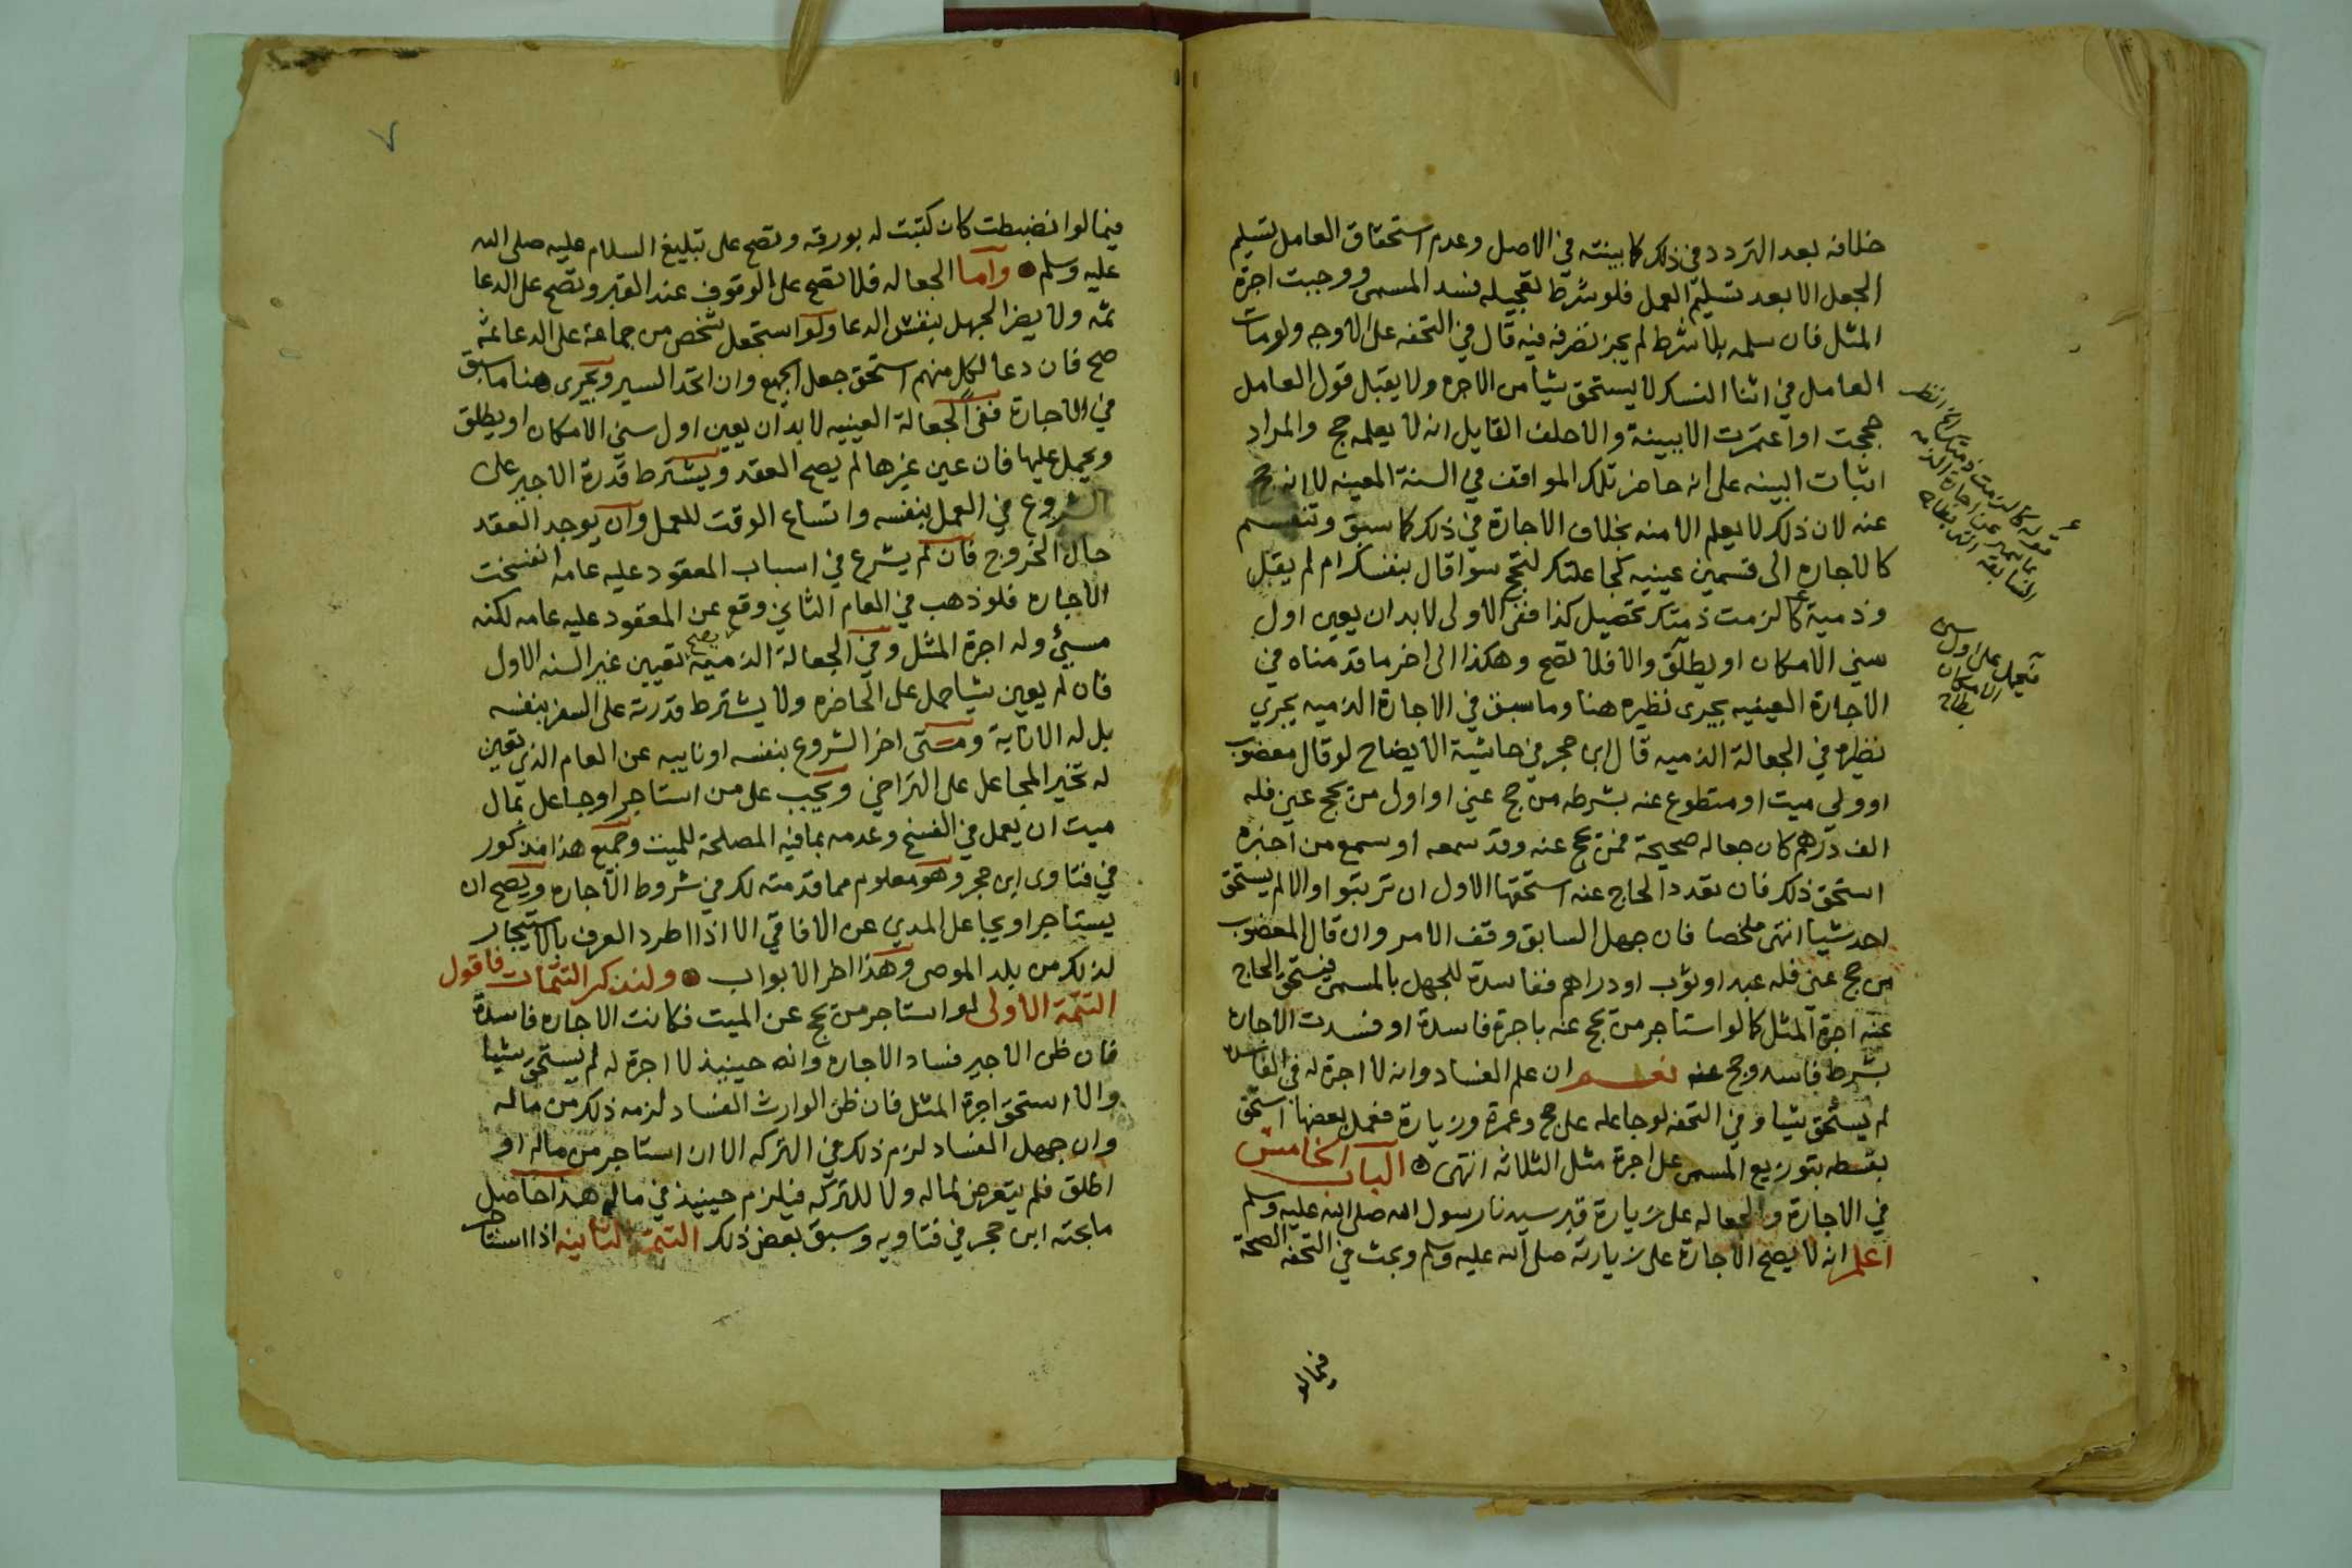 خلافه بعد التردد في ذلك كما بينته في الاصل وعدم استحقاق العامل تسليم
الجعل الا بعد تسليم العمل فلو شرط تعجيله فسد المسمى ووجبت اجرة
المثل فان سلمه بلا شرط لم يجز تصرفه فيه قال في التحفه على الاوجه ولو مات
العامل في اثنا النسك لا يستحق شيا من الاجره ولا يقبل قول العامل
حججت او اعتمرت الا ببينة والا حلف القايل انه لا يعلمه حج والمراد
اثبات البينه على انه حاضر تلك المواقف في السنة المعينه لا انه حج
عنه لان ذلك لا يعلم الا منه بخلاف الاجارة في ذلك كما سبق وتنقسم
كالاجاره الى قسمين عينيه كجاعلتك لتحج سوا قال بنفسك ام لم يقل
وذمية كالزمت ذمتك تحصيل كذا ففي الاولى لا بد ان يعين اول
سني الامكان او يطلق والا فلا تصح وهكذا الى اخر ما قدمناه في
الاجارة العينيه يجرى نظيره هنا وما سبق في الاجارة الذميه يجري
نظيره في الجعالة الذميه قال ابن حجر في حاشية الايضاح لو قال معضوب
او ولي ميت او متطوع عنه بشرطه من حج عني او اول من يحج عني فله
الف درهم كان جعاله صحيحة فمن حج عنه وقد سمعه او سمع من اخبره
استحق ذلك فان تعدد الحاج عنه استحقها الاول ان ترتبوا والا لم يستحق
احد شيا انتهى ملخصا فان جهل السابق وقف الامر وان قال المعضوب
من حج عني فله عبد او ثوب او دراهم ففاسدة للجهل بالمسمى فيستحق الحاج
عنه اجرة المثل كما لو استاجر من يحج عنه باجرة فاسدة او فسدت الاجارة
بشرط فاسد وحج عنه نعم ان علم الفساد وانه لا اجرة له في الفاسد
لم يستحق شيا وفي التحفه لو جاعله على حج وعمرة وزيارة فعمل بعضها استحق
بقسطه بتوزيع المسمى على اجرة مثل الثلاثه انتهى الباب الخامس
في الاجارة والجعاله على زيارة قبر سيدنا رسول الله صلى الله عليه وسلم
اعلم انه لا يصح الاجارة على زيارته صلى الله عليه وسلم وبحث في التحفه الصحة
فيما لو
قوله كالزمت ذمتك
فيحمل على اول سني
الامكان
فيما لو انضبطت كان كتبت له بورقه وتصح على تبليغ السلام عليه صلى الله
عليه وسلم واما الجعاله فلا تصح على الوقوف عند القبر وتصح على الدعا
ثمه ولا يضر الجهل بنفس الدعا ولو استجعل شخص من جماعة على الدعا ثمه
صح فان دعا لكل منهم استحق جعل الجميع وان اتحد السير ويجرى هنا ما سبق
في الاجارة ففي الجعالة العينيه لا بد ان يعين اول سني الامكان او يطلق
ويحمل عليها فان عين غيرها لم يصح العقد ويشترط قدرة الاجير على
الشروع في العمل بنفسه واتساع الوقت للعمل وان يوجد العقد
حال الخروج فان لم يشرع في اسباب المعقود عليه عامه انفسخت
الاجاره فلو ذهب في العام الثاني وقع عن المعقود عليه عامه لكنه
مسيئ وله اجرة المثل وفي الجعالة الذميه يصح تعيين غير السنه الاول
فان لم يعين شيا حمل على الحاضره ولا يشترط قدرته على السفر بنفسه
بل له الانابة ومتى اخر الشروع بنفسه او نايبه عن العام الذي تعين
له تخير المجاعل على التراخي ويجب على من استاجر او جاعل بمال
ميت ان يعمل في الفسخ وعدمه بما فيه المصلحة للميت وجميع هذا مذكور
في فتاوى ابن حجر وهو معلوم مما قدمته لك في شروط الاجاره ويصح ان
يستاجر او يجاعل المدي عن الافاقي الا اذا اطرد العرف بالاستيجار
لذلك من بلد الموصى وهذا اخر الابواب ولنذكر التتمات فاقول
التتمة الاولى لو استاجر من يحج عن الميت فكانت الاجاره فاسدة
فان ظن الاجير فساد الاجاره وانه حينيذ لا اجرة له لم يستحق شيا
والا استحق اجرة المثل فان ظن الوارث الفساد لزمه ذلك من ماله
وان جهل الفساد لزم ذلك في التركه الا ان استاجر من ماله او
اطلق فلم يتعرض لماله ولا للتركه فيلزم حينيذ في ماله هذا حاصل
ما بحثه ابن حجر في فتاويه وسبق بعض ذلك التتمة الثانيه اذا استاجر